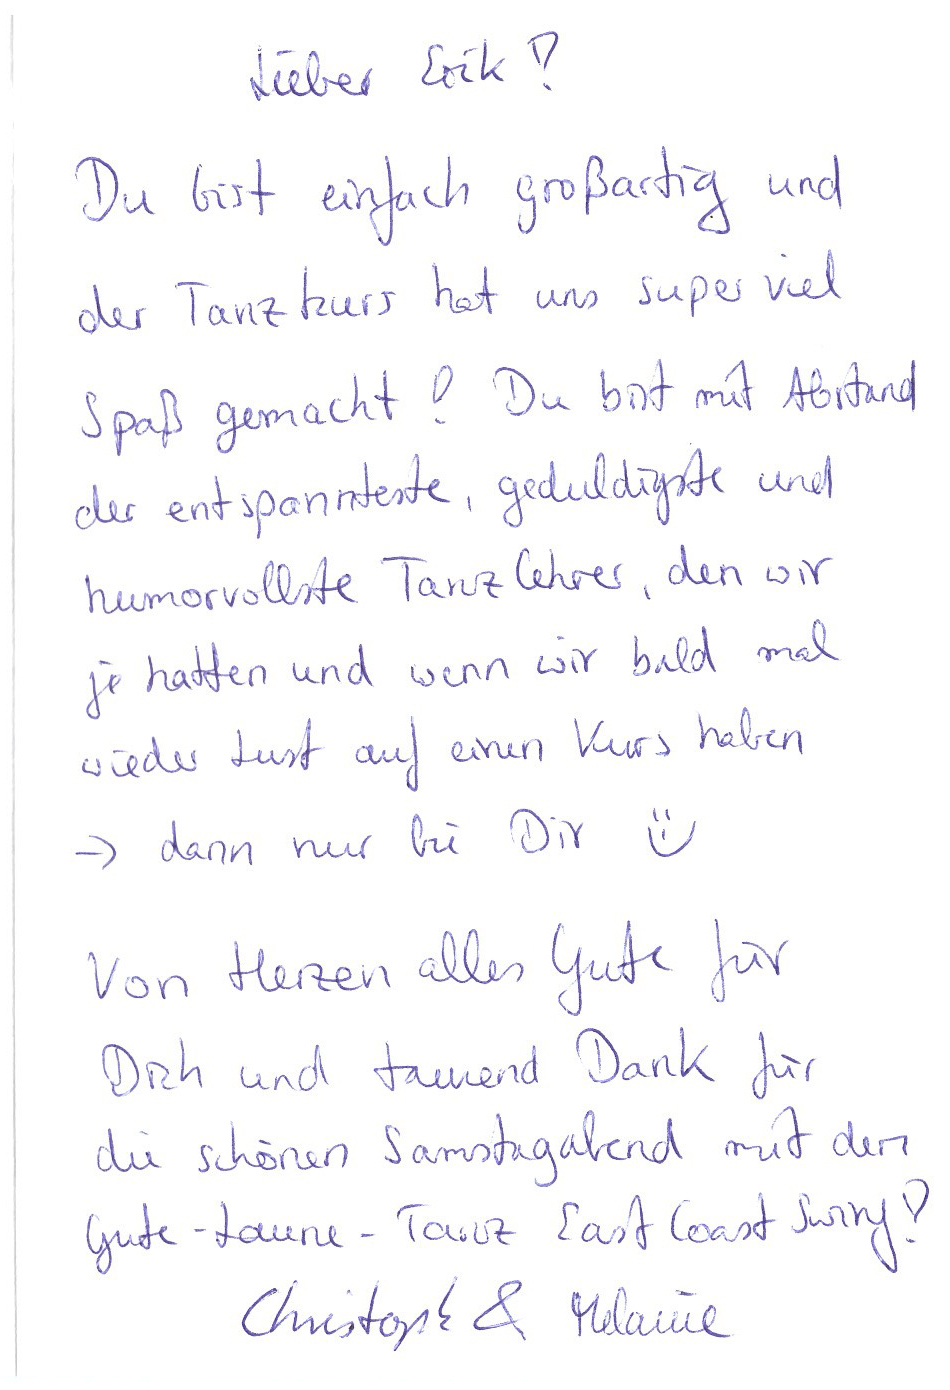 Lieber Erik!
Du bist einfach großartig und
der Tanzkurs hat uns super viel
Spaß gemacht! Du bist mit Abstand
der entspannteste, geduldigste und
humorvollste Tanzlehrer, den wir
je hatten und wenn wir bald mal
wieder Lust auf einen Kurs haben
→ dann nur bei Dir ☺
Von Herzen alles Gute für
Dich und tausend Dank für
die schönen Samstagabend mit dem
Gute-Laune-Tanz East Coast Swing!
Christoph & Melanie